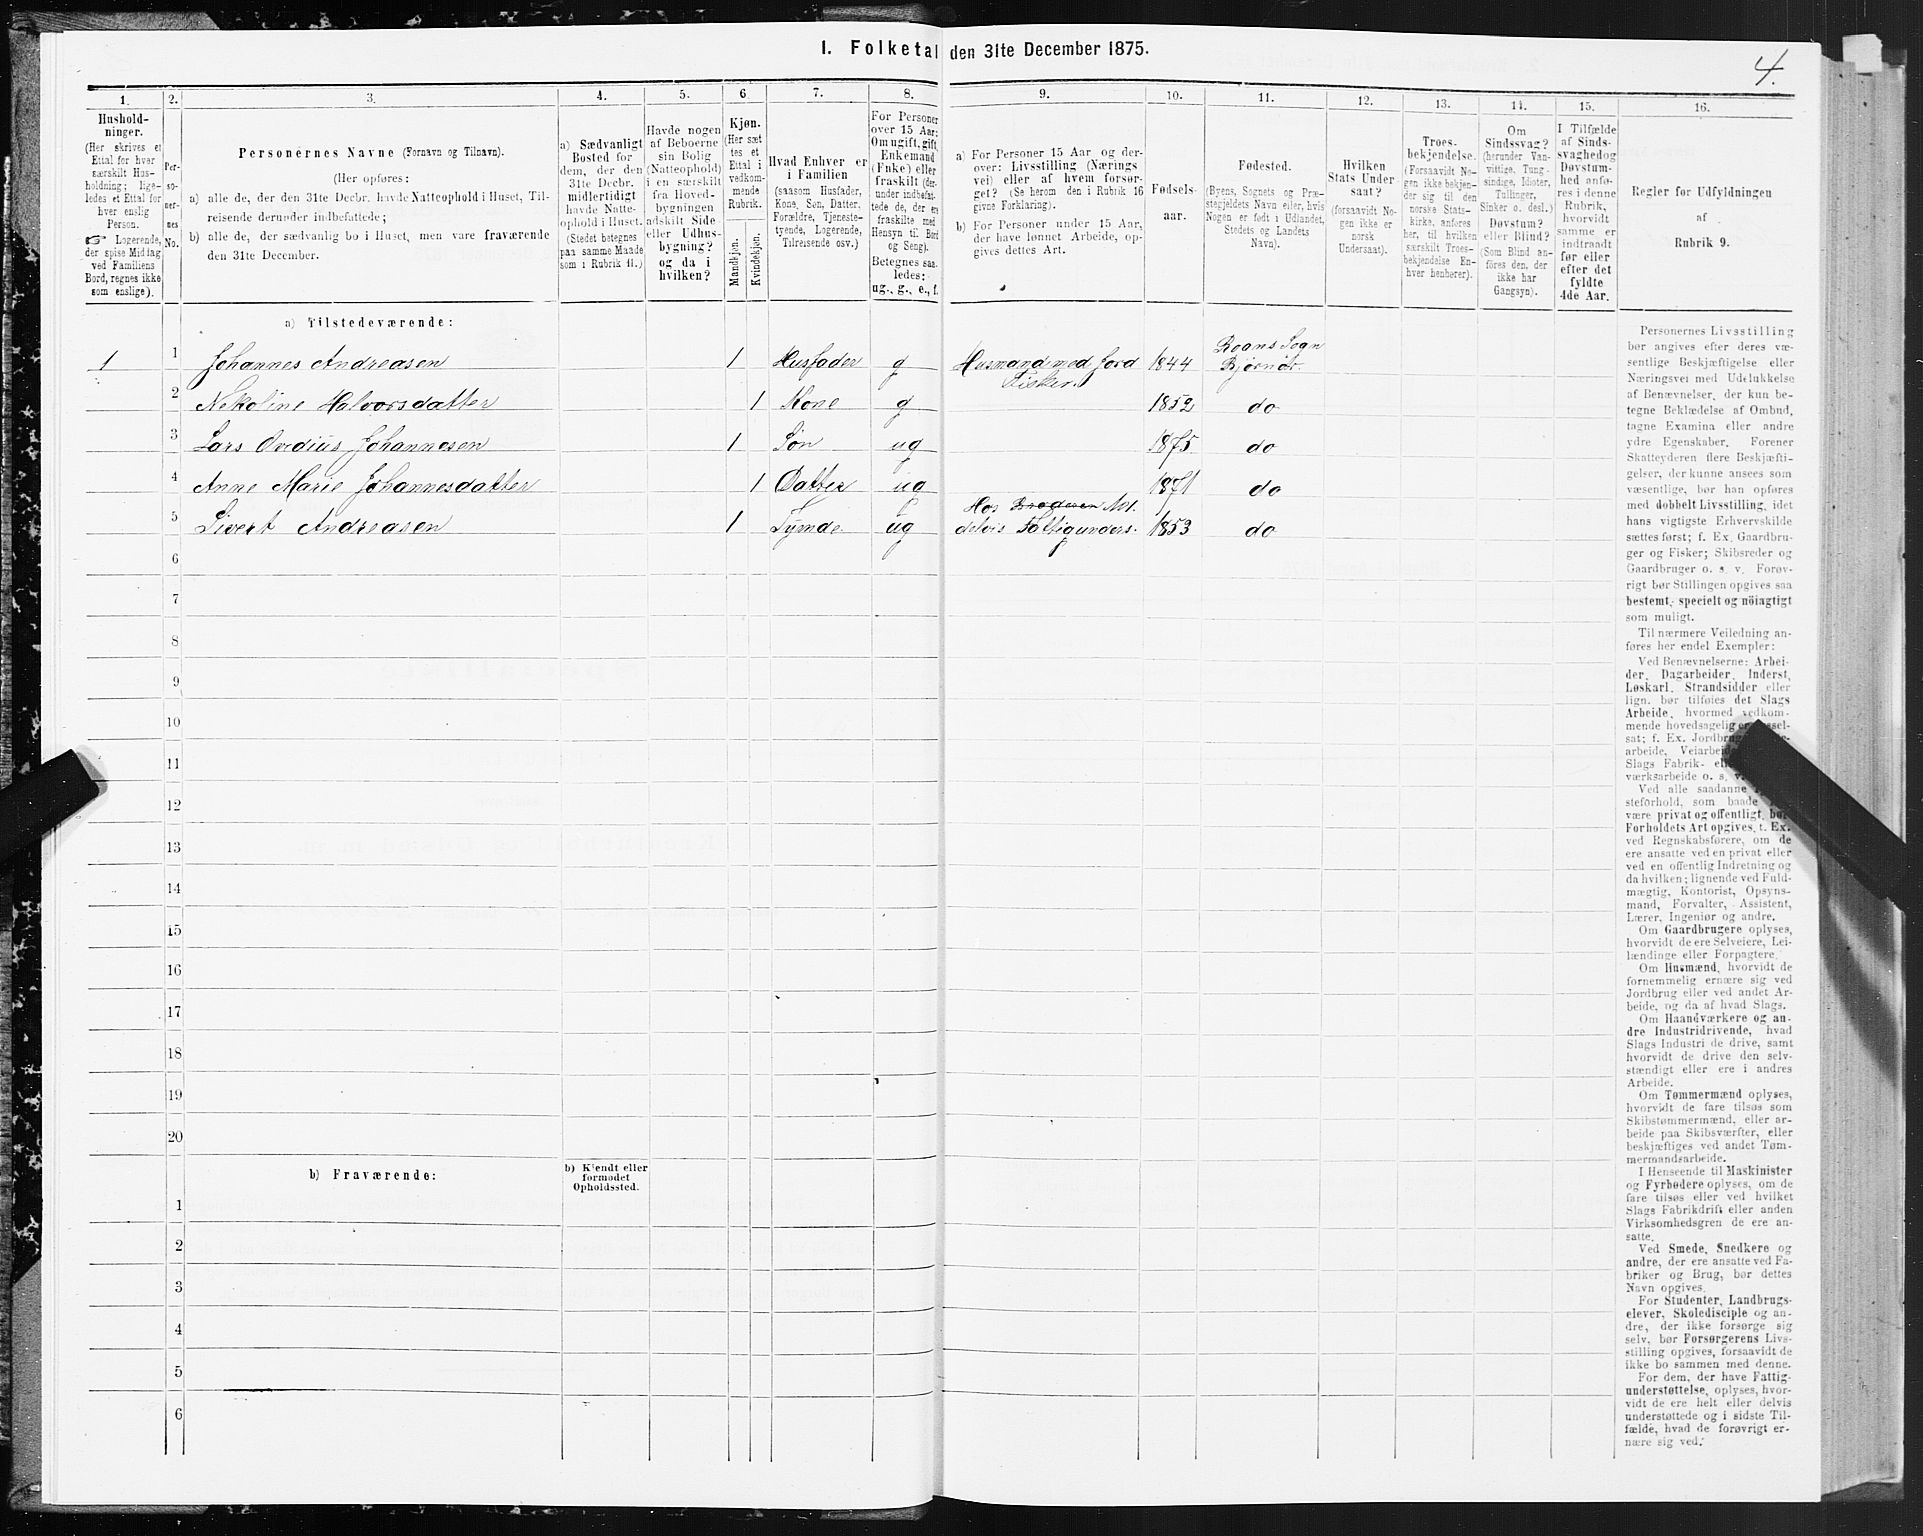 I. Folketal den 31te December 1875.
4.
1.
2.
3.
4.
5.
6
7.
8.
9.
10.
11.
12.
13.
14.
15.
16.
Hushold-
ninger.
(Her skrives et
Ettal for hver
særskilt Hus-
holdning; lige-
ledes et Ettal for
hver enslig
Person.
☞ Logerende,
der spise Middag
ved Familiens
Bord, regnes ikke
som enslige).
Per-
so-
ner-
nes
No.
Personernes Navne (Fornavn og Tilnavn).
(Her opføres:
a) alle de, der den 31te Decbr. havde Natteophold i Huset, Til-
reisende derunder indbefattede;
b) alle de, der sædvanlig bo i Huset, men vare fraværende
den 31te December.
a) Sædvanligt
Bosted for
dem, der den
31te Decbr.
midlertidigt
havde Natte-
ophold i Huset.
(Stedet betegnes
paa samme Maade
som i Rubrik 11.)
Havde nogen
af Beboerne
sin Bolig
(Natteophold)
i en særskilt
fra Hoved-
bygningen
adskilt Side
eller Udhus-
bygning?
og da i
hvilken?
Kjøn.
(Her sæt-
tes et
Ettal i
vedkom-
mende
Rubrik.
Mandkjøn.
Kvindekjøn.
Hvad Enhver er
i Familien
(saasom Husfader,
Kone, Søn, Datter,
Forældre, Tjeneste-
tyende, Logerende,
Tilreisende osv.)
For Personer
over 15 Aar:
Om ugift, gift,
Enkemand
(Enke) eller
fraskilt (der-
under indbefat-
tede de, der er
fraskilte med
Hensyn til Bord
og Seng).
Betegnes saa-
ledes:
ug., g., e., f.
a) For Personer 15 Aar og der-
over: Livsstilling (Nærings
vei) eller af hvem forsør-
get? (Se herom den i Rubrik 16
givne Forklaring).
b) For Personer under 15 Aar,
der have lønnet Arbeide, op-
gives dettes Art.
Fødsels-
aar.
Fødested.
(Byens, Sognets og Præ-
stegjeldets Navn eller, hvis
Nogen er født i Udlandet,
Stedets og Landets
Navn).
Hvilken
Stats Under
saat?
(forsaavidt No-
gen ikke er
norsk
Undersaat).
Troes-
bekjendelse.
(Forsaavidt No-
gen ikke bekjen-
der sig til den
norske Stats-
kirke, anføres
her, til hvilken
særskilt Troes-
bekjendelse En-
hver henhører).
Om
Sindssvag?
(herunder Van-
vittige, Tung-
sindige, Idioter,
Tullinger,
Sinker o. desl.)
Døvstum?
eller Blind?
(Som Blind an-
føres den, der
ikke har
Gangsyn).
I Tilfælde
af Sinds-
svaghed og
Døvstum-
hed anfø-
res i denne
Rubrik,
hvorvidt
samme er
indtraadt
før eller
efter det
fyldte
4de Aar.
Regler for Udfyldningen
af
Rubrik 9.
a) Tilstedeværende:
1 1 Johannes Andreasen 1 Husfader g Husmand med Jord Fisker. 1844 Roans Sogn Bjørnør.
2 Nekoline Halvorsdatter 1 Kone g 1852 do
3 Lars Ovedius Johannesen 1 Søn ug 1875 do
4 Anne Marie Johannesdatter 1 Datter ug 1871 do
5 Sivert Andreasen 1 ug Hos Broderen delvis Fattigunders. 1853 do
6
7
8
9
10
11
12
13
14
15
16
17
18
19
20
b) Fraværende:
b) Kjendt eller
formodet
Opholdssted.
1
2
3
4
5
6
Personernes Livsstilling
bør angives efter deres væ-
sentlige Beskjæftigelse eller
Næringsvei med Udelukkelse
af Benævnelser, der kun be-
tegne Beklædelse af Ombud,
tagne Examina eller andre
ydre Egenskaber. Forener
Skatteyderen flere Beskjæfti-
gelser, der kunne ansees som
væsentlige, bør han opføres
med dobbelt Livsstilling, idet
hans vigtigste Erhvervskilde
sættes først; f. Ex. Gaardbru-
ger og Fisker; Skibsreder og
Gaardbruger o. s. v. Forøv-
rigt bør Stillingen opgives saa
bestemt, specielt og nöiagtigt
som muligt.
Til nærmere Veiledning an-
føres her endel Exempler:
Ved Benævnelserne: Arbei-
der, Dagarbeider, Inderst,
Løskarl, Strandsidder eller
lign. bør tilføies det Slags
Arbeide, hvormed vedkom-
mende hovedsagelig er syssel-
sat; f. Ex. Jordbrug
arbeide, Veiarbeide
Slags Fabrik-
værksarbeide o. s. v.
Ved alle saadanne
steforhold, som baade
være privat og offentligt, bør
Forholdets Art opgives, t. Ex.
ved Regnskabsførere, om de
ere ansatte ved en privat eller
ved en offentlig Indretning og
da hvilken; lignende ved Fuld-
mægtig, Kontorist, Opsyns-
mand, Forvalter, Assistent,
Lærer, Ingeniør og andre.
Om Gaardbrugere oplyses,
hvorvidt de ere Selveiere, Lei-
lændinge eller Forpagtere.
Om Husmænd, hvorvidt de
fornemmelig ernære sig ved
Jordbrug eller ved andet Ar-
beide, og da af hvad Slags.
Om Haandværkere og an-
dre Industridrivende, hvad
Slags Industri de drive, samt
hvorvidt de drive den selv-
stændigt eller ere i andres
Arbeide.
Om Tømmermænd oplyses,
hvorvidt de fare tilsøs som
Skibstømmermænd, eller ar-
beide paa Skibsværfter, eller
beskjæftiges ved andet Tøm-
mermandsarbeide.
I Henseende til Maskinister
og Fyrbødere oplyses, om de
fare tilsøs eller ved hvilket
Slags Fabrikdrift eller anden
Virksomhedsgren de ere an-
satte.
Ved Smede, Snedkere og
andre, der ere ansatte ved Fa-
briker og Brug, bør dettes
Navn opgives.
For Studenter, Landbrugs-
elever, Skoledisciple og an-
dre, der ikke forsørge sig
selv, bør Forsørgerens Livs-
stilling opgives, forsaavidt de
ikke bo sammen med denne.
For dem, der have Fattig-
understøttelse, oplyses, hvor-
vidt de ere helt eller delvis
understøttede og i sidste Til-
fælde, hvad de forøvrigt er-
nære sig ved.